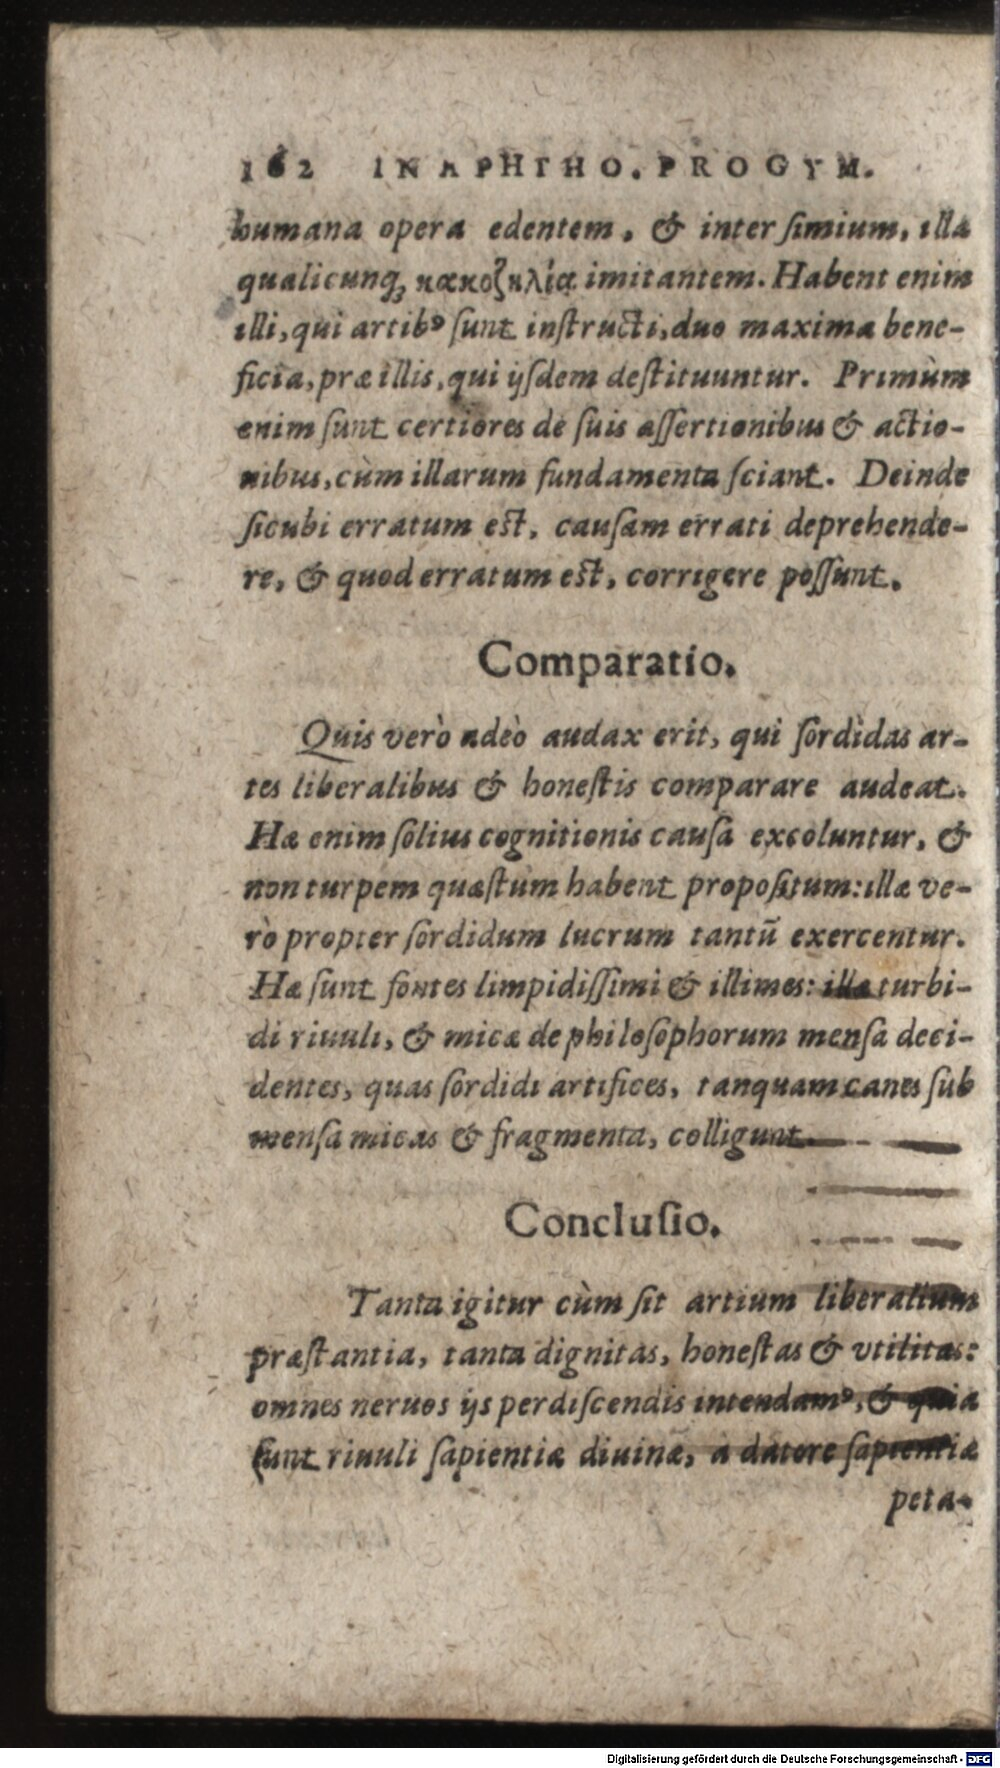 162 IN APHTHO. PROGYM.
humana opera edentem, & inter ſimium, illa
qualicunq; κακοζηλίᾳ imitantem. Habent enim
illi, qui artibꝰ ſunt inſtructi, duo maxima bene-
ficia, præ illis, qui ijſdem deſtituuntur. Primùm
enim ſunt certiores de ſuis aſſertionibus & actio-
nibus, cùm illarum fundamenta ſciant. Deinde
ſicubi erratum eſt, cauſam errati deprehende-
re, & quod erratum eſt, corrigere poſſunt.
Comparatio.
Quis verò adeò audax erit, qui ſordidas ar-
tes liberalibus & honeſtis comparare audeat.
Hæ enim ſolius cognitionis cauſa excoluntur, &
non turpem quæſtum habent propoſitum: illæ ve-
rò propter ſordidum lucrum tantū exercentur.
Hæ ſunt fontes limpidiſſimi & illimes: illæ turbi-
di riuuli, & micæ de philoſophorum menſa deci-
dentes, quas ſordidi artifices, tanquam canes ſub
menſa micas & fragmenta, colligunt.
Concluſio.
Tanta igitur cùm ſit artium liberalium
præſtantia, tanta dignitas, honeſtas & vtilitas:
omnes neruos ijs perdiſcendis intendamꝰ, & quia
ſunt riuuli ſapientiæ diuinæ, à datore ſapientiæ
peta-
Digitalisierung gefördert durch die Deutsche Forschungsgemeinschaft - DFG